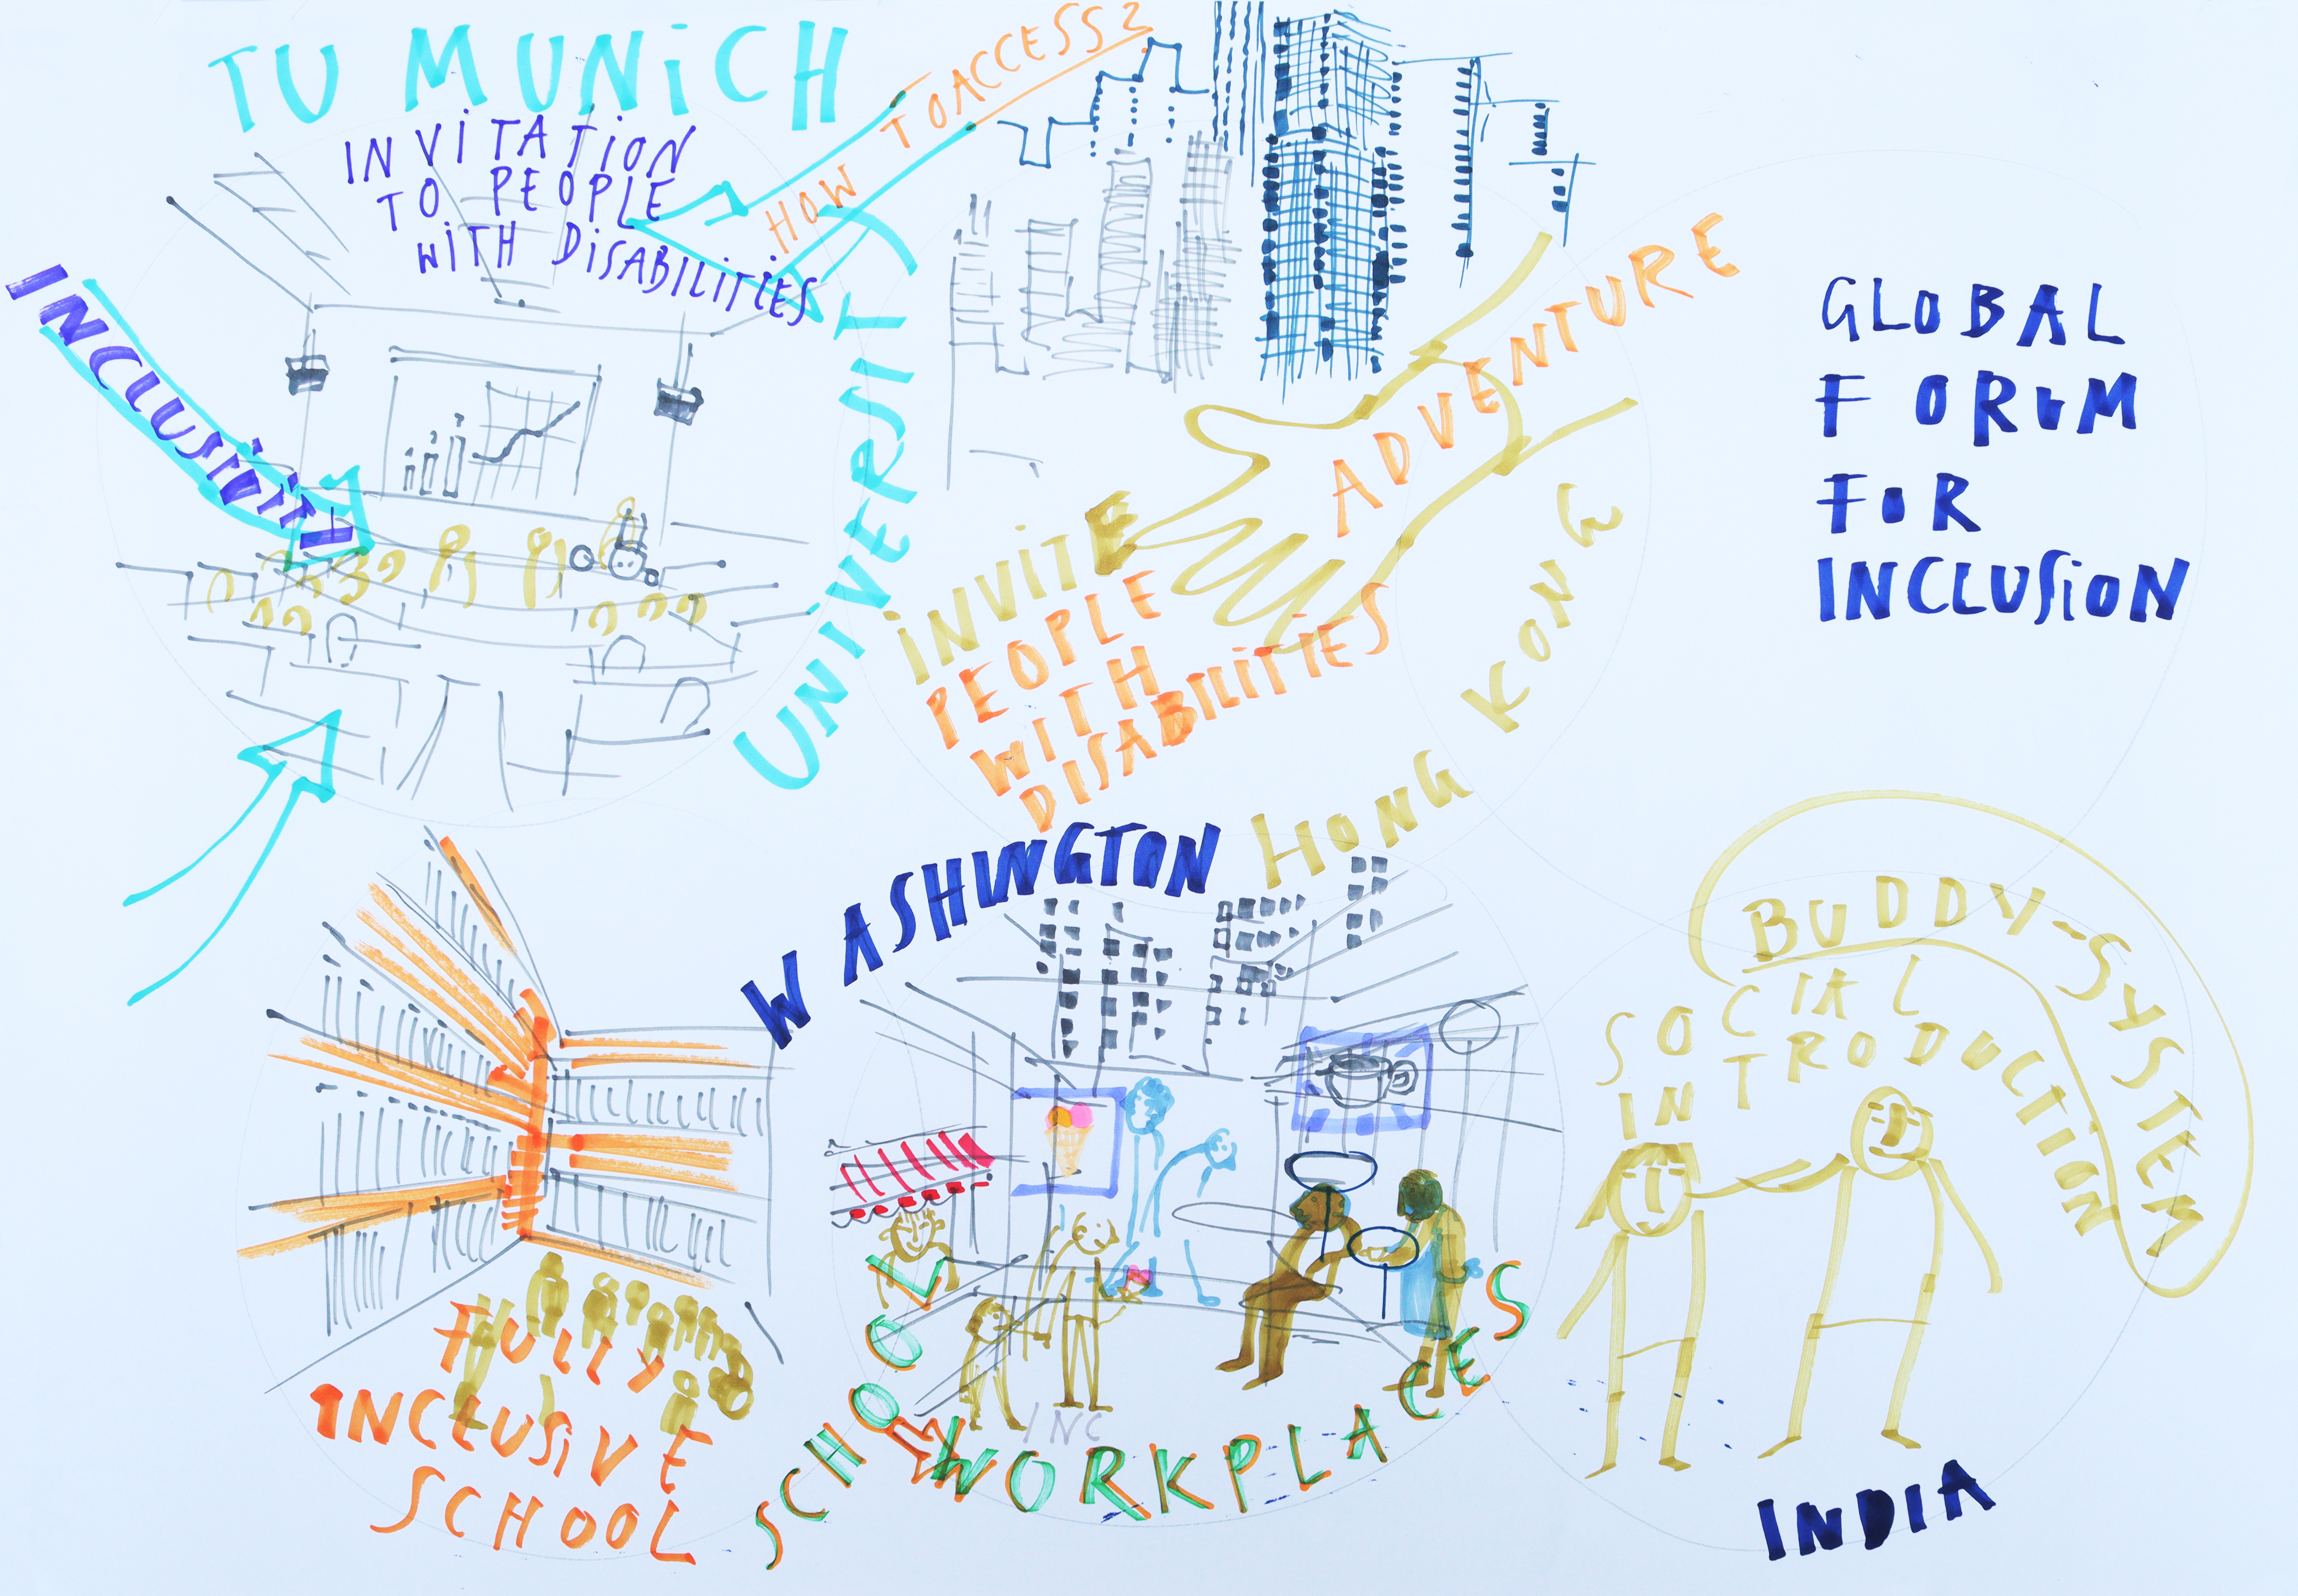 TU MUNiCH
INViTATiON
TO PEOPLE
WiTH DiSABiLiTiES
HOW TO ACCESS?
INCLUSiViTY
UNiVERSiTY
ADVENTURE
iNViTE
PEOPLE
WITH
DISABiLiTiES
HONG KONG
GLOBAL
FORUM
FOR
INCLUSiON
WASHINGTON
FULLY
INCLUSiVE
SCHOOL
SCHOOL
INC
WORKPLACES
BUDDY-SYSTEM
SOCIAL
INTRODUCTION
INDIA